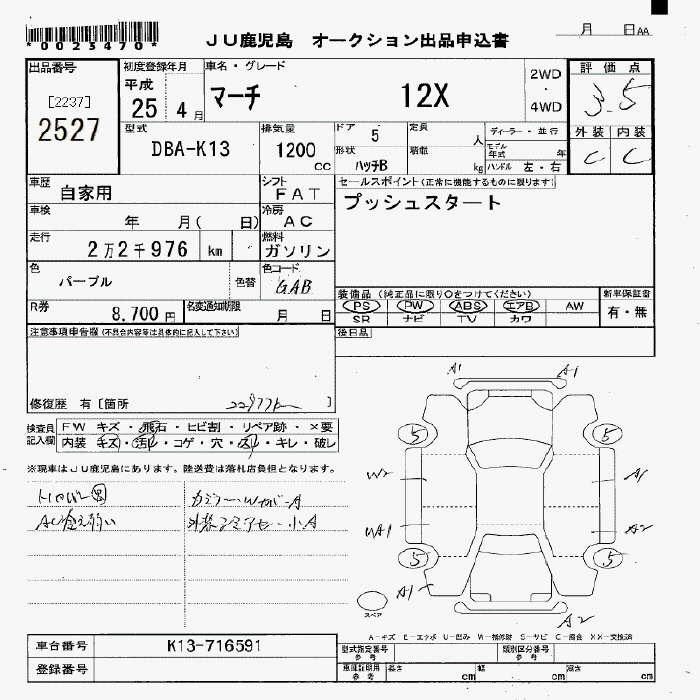 *0023470*
JU鹿児島 オークション出品申込書
月 日 AA
出品番号
[2237]
2527
初度登録年月
平成
25 4 月
車名・グレード
マーチ 12X
2WD
・
4WD
評価点
3.5
外装 内装
C C
型式
DBA-K13
排気量
1200
cc
ドア 5
形状 ハッチB
定員 人
積載 kg
ディーラー・並行
モデル年式 年
ハンドル 左・右
車歴
自家用
シフト
FAT
セールスポイント(正常に機能するものに限ります)
プッシュスタート
車検 年 月( 日)
冷房
AC
走行
2万2千976 km
燃料
ガソリン
色
パープル
色替
色コード
GAB
装備品(純正品に限り○をつけてください)
PS PW ABS エアB AW
SR ナビ TV カワ
新車保証書
有・無
R券
8,700円
名変通知期限
月 日
後日品
注意事項申告欄(不具合内容等は具体的に記入して下さい)
修復歴 有〔箇所 22977km 〕
検査員記入欄
FW キズ・飛石・ヒビ割・リペア跡・×要
内装 キズ・汚れ・コゲ・穴・スレ・キレ・破レ
※現車はJU鹿児島にあります。陸送費は落札店負担となります。
A1 A1
5 5
W2 A1
WA1 A2
5 5
A1 A2
スペア
A-キズ E-エクボ U-凹み W-補修跡 S-サビ C-腐食 XX-交換済
車台番号 K13-716591
登録番号
型式指定番号 参考
類別区分番号 参考
車庫証明用 参考 長さ cm 幅 cm 高さ cm